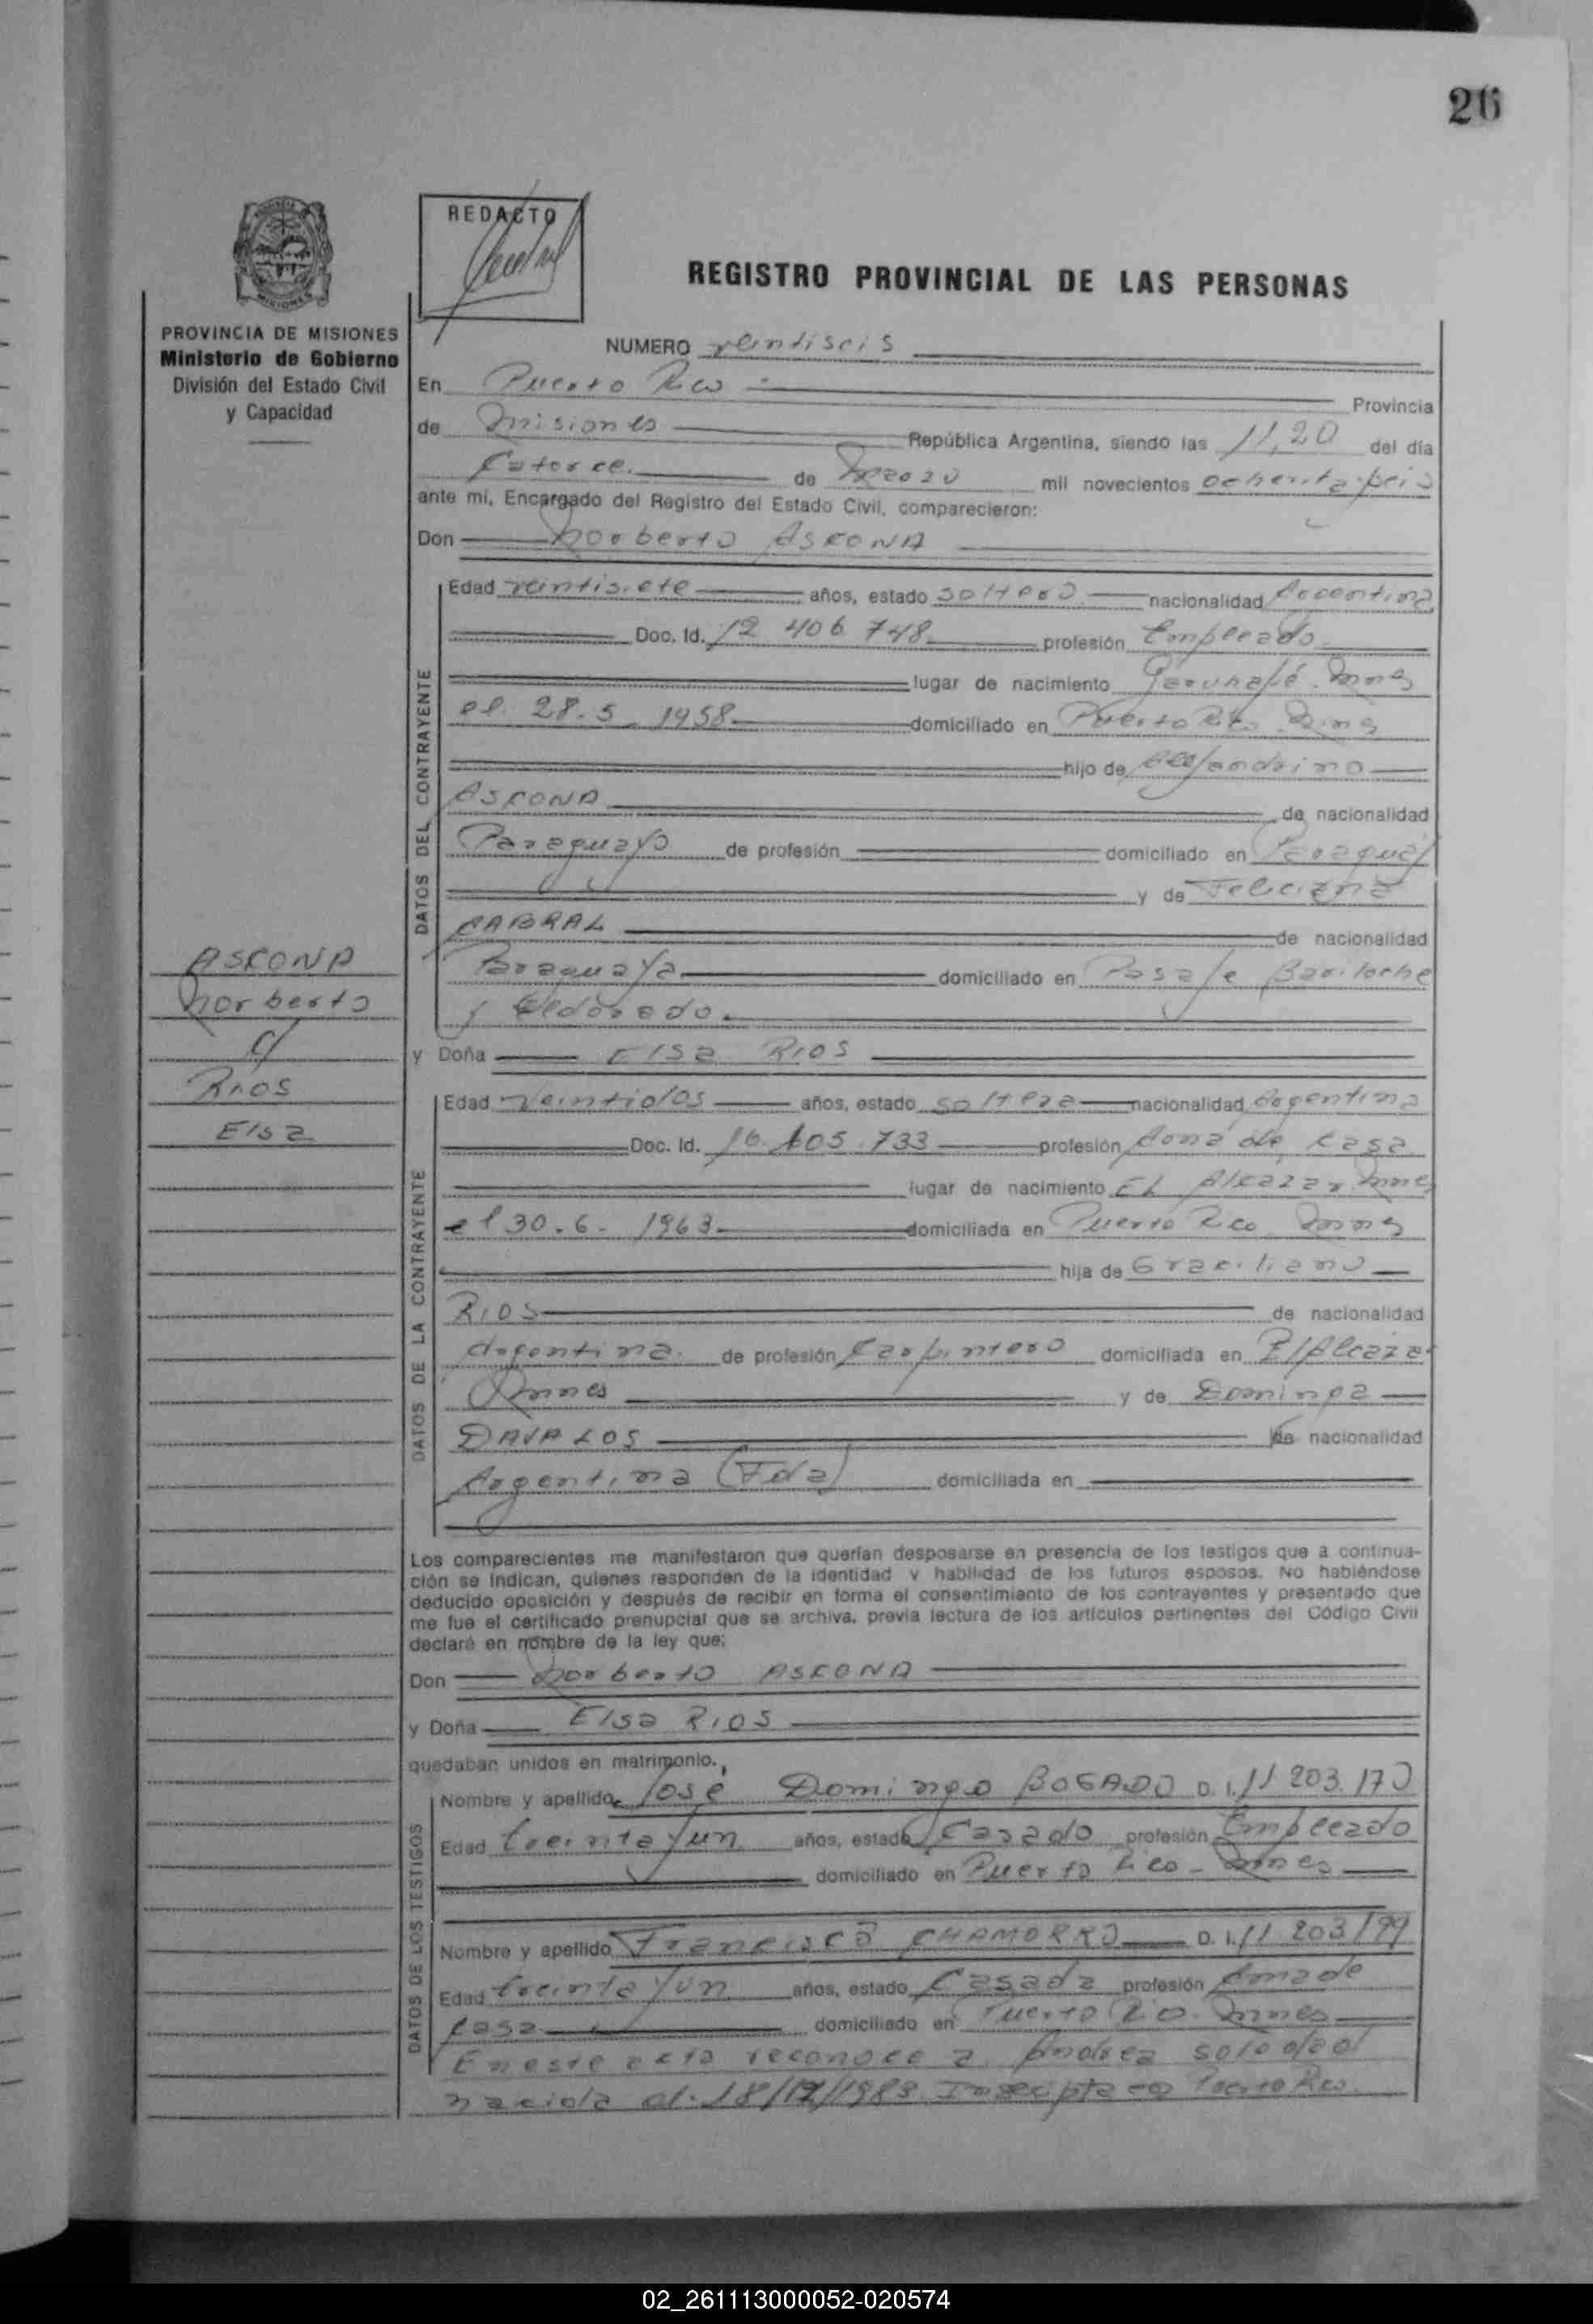 26
REDACTO
REGISTRO PROVINCIAL DE LAS PERSONAS
PROVINCIA DE MISIONES
Ministerio de Gobierno
División del Estado Civil
y Capacidad
NUMERO veintiseis
En Puerto Rico Provincia
de Misiones República Argentina, siendo las 11,20 del día
Catorce de Marzo mil novecientos ochenta y seis
ante mí, Encargado del Registro del Estado Civil, comparecieron:
Don Norberto ASCONA
DATOS DEL CONTRAYENTE
Edad veintisiete años, estado soltero nacionalidad Argentina
Doc. Id. 12 406 748 profesión Empleado
lugar de nacimiento Garuhapé Mnes
el 28-5-1958 domiciliado en Puerto Rico Mnes
hijo de Alejandrino
ASCONA de nacionalidad
Paraguayo de profesión domiciliado en Paraguay
y de Feliciana
CABRAL de nacionalidad
Paraguaya domiciliado en Pasaje Bariloche
y Eldorado.
ASCONA
Norberto
c/
RIOS
Elsa
y Doña Elsa RIOS
DATOS DE LA CONTRAYENTE
Edad Veintidos años, estado soltera nacionalidad Argentina
Doc. Id. 16 605 733 profesión Ama de casa
lugar de nacimiento El Alcazar Mnes
el 30-6-1963 domiciliada en Puerto Rico Mnes
hija de Graciliano
RIOS de nacionalidad
Argentina de profesión Carpintero domiciliada en El Alcazar
Mnes y de Dominga
DAVALOS de nacionalidad
Argentina (Fda) domiciliada en
Los comparecientes me manifestaron que querían desposarse en presencia de los testigos que a continua-
ción se indican, quienes responden de la identidad y habilidad de los futuros esposos. No habiéndose
deducido oposición y después de recibir en forma el consentimiento de los contrayentes y presentado que
me fue el certificado prenupcial que se archiva, previa lectura de los artículos pertinentes del Código Civil
declaré en nombre de la ley que:
Don Norberto ASCONA
y Doña Elsa RIOS
quedaban unidos en matrimonio.
DATOS DE LOS TESTIGOS
Nombre y apellido José Domingo BOGADO D. I. 11 203.170
Edad treinta y un años, estado Casado profesión Empleado
domiciliado en Puerto Rico - Mnes
Nombre y apellido Francisca CHAMORRO D. I. 11 203 199
Edad treinta y un años, estado Casada profesión Ama de
casa domiciliado en Puerto Rico. Mnes
En este acto reconoce a Andrea Soledad
nacida el 18/12/1983 Inscripta en Puerto Rico
02_261113000052-020574